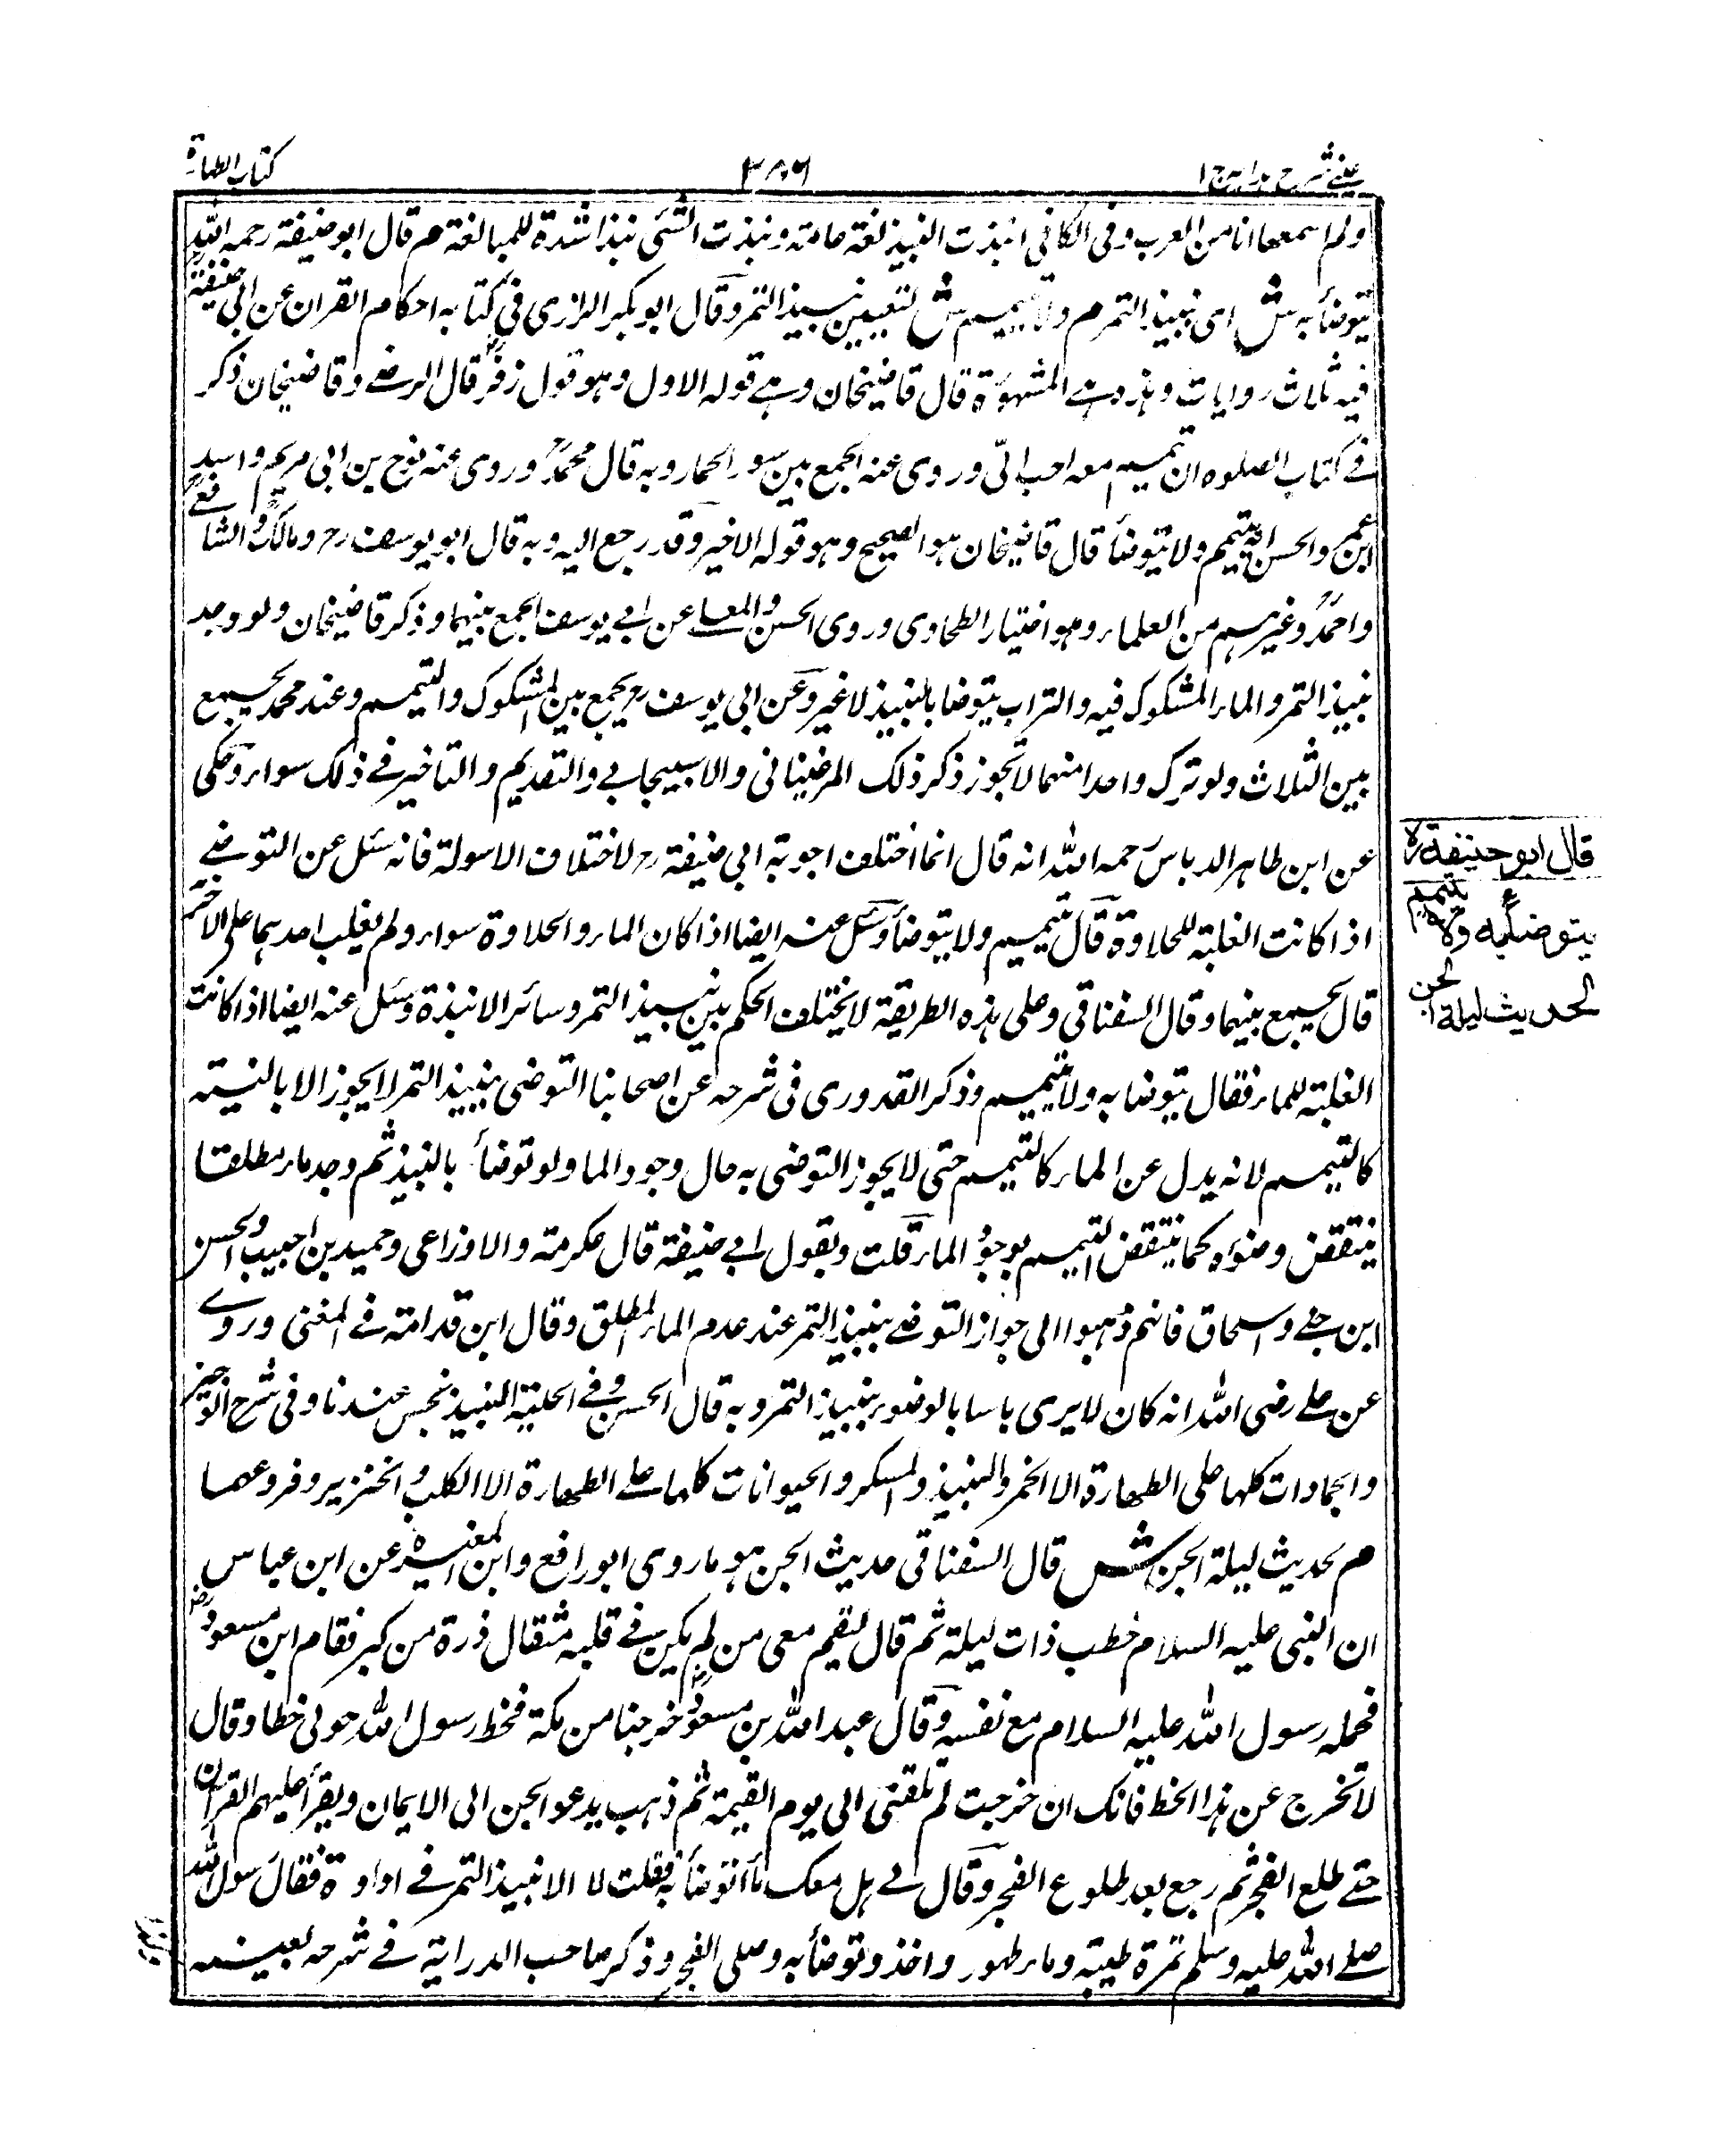 عینی شرح ہدایہ ج ۱
۳۸۶
کتاب الطہارۃ
ولم اسمعها انا من العرب وفی الکافی انبذت النبیذ لغة عامته ونبذت الشئی نبذا شدة للمبالغة م قال ابو حنیفة رحمہ اللہ
یتوضأ به ش ای بنبیذ التمر م ولا یتیمم ش لتعیین نبیذ التمر وقال ابو بکر الرازی فی کتابه احکام القران عن ابی حنیفة
فیه ثلاث روایات وہذہ ہے المشہورة قال قاضیخان وہے قوله الاول وہو قول زفر قال الرضے وقاضیخان ذکر
فے کتاب الصلوہ ان تیمم معه احب الیّ وروی عنه الجمع بین سور الحمار وبه قال محمد وروی عنه نوح بن ابی مریم واسد
ابن عمر والحسن انہ یتیمم ولا یتوضأ قال قاضیخان ہو الصحیح وہو قوله الاخیر وقد رجع الیه وبه قال ابو یوسف رح ومالک والشافعے
واحمد وغیرہم من العلماء وہو اختیار الطحاوی وروی الحسن والمعلے عن ابے یوسف الجمع بینہما وذکر قاضیخان ولو وجد
نبیذ التمر والماء المشکوک فیه والتراب یتوضا بالنبیذ لا غیر وعن ابی یوسف رح یجمع بین المشکوک والتیمم وعند محمد یجمع
بین الثلاث ولو ترک واحدا منہما لا تجوز ذکر ذلک المرغینانی والاسبیجابے والتقدیم والتاخیر فے ذلک سواء وحکی
عن ابن طاہر الدباس رحمہ اللہ انه قال انما اختلف اجوبة ابی حنیفة رح لاختلاف الاسولة فانه سئل عن التوضے
اذا کانت الغلبة للحلاوة قال تیمم ولا یتوضأ وسئل عنه ایضا اذا کان الماء والحلاوة سواء ولم یغلب احدہما علی الآخر
قال یجمع بینہما وقال السغناقی وعلی ہذہ الطریقة لا یختلف الحکم بین نبیذ التمر وسائر الانبذة وسئل عنه ایضا اذا کانت
الغلبة للماء فقال یتوضا به ولا یتیمم وذکر القدوری فی شرحه عن اصحابنا التوضی بنبیذ التمر لا یجوز الا بالنیة
کالتیمم لانه بدل عن الماء کالتیمم حتی لا یجوز التوضی به حال وجود الما ولو توضأ بالنبیذ ثم وجد ماء مطلقا
ینتقض وضوءہ کما ینتقض التیمم بوجود الماء قلت وبقول ابے حنیفة قال عکرمة والاوزاعی وحمید بن حبیب والحسن
ابن حیّ واسحاق فانہم ذہبوا الی جواز التوضے بنبیذ التمر عند عدم الماء المطلق وقال ابن قدامة فے المغنی وروے
عن علے رضی اللہ انه کان لا یری باسا بالوضوء بنبیذ التمر وبه قال الحسن وفے الحلیة النبیذ نجس عندنا وفی شرح الوجیز
والجمادات کلہا علی الطہارة الا الخمر والنبیذ والمسکر والحیوانات کلہا علے الطہارة الا الکلب والخنزیر وفروعہما
م لحدیث لیلة الجن ش قال السغناقی حدیث الجن ہو ما روی ابو رافع وابن المغیرہ عن ابن عباس
ان النبی علیه السلام خطب ذات لیلة ثم قال لیقم معی من لم یکن فے قلبه مثقال ذرة من کبر فقام ابن مسعود
فحمله رسول اللہ علیه السلام مع نفسه وقال عبد اللہ بن مسعود خرجنا من مکة فخط رسول اللہ حولی خطا وقال
لا تخرج عن ہذا الخط فانک ان خرجت لم تلقنی الی یوم القیمة ثم ذہب یدعو الجن الی الایمان ویقرأ علیہم القرآن
حتے طلع الفجر ثم رجع بعد طلوع الفجر وقال لے ہل معک ماء اتوضأ به فقلت لا الا نبیذ التمر فے اداوة فقال رسول اللہ
صلے اللہ علیه وسلم تمرة طیبة وماء طہور واخذ وتوضأ به وصلی الفجر وذکر صاحب الدرایة فے شرحه بعینه
قال ابو حنیفة رح
یتوضأ به ولا یتیمم
لحدیث لیلة الجن